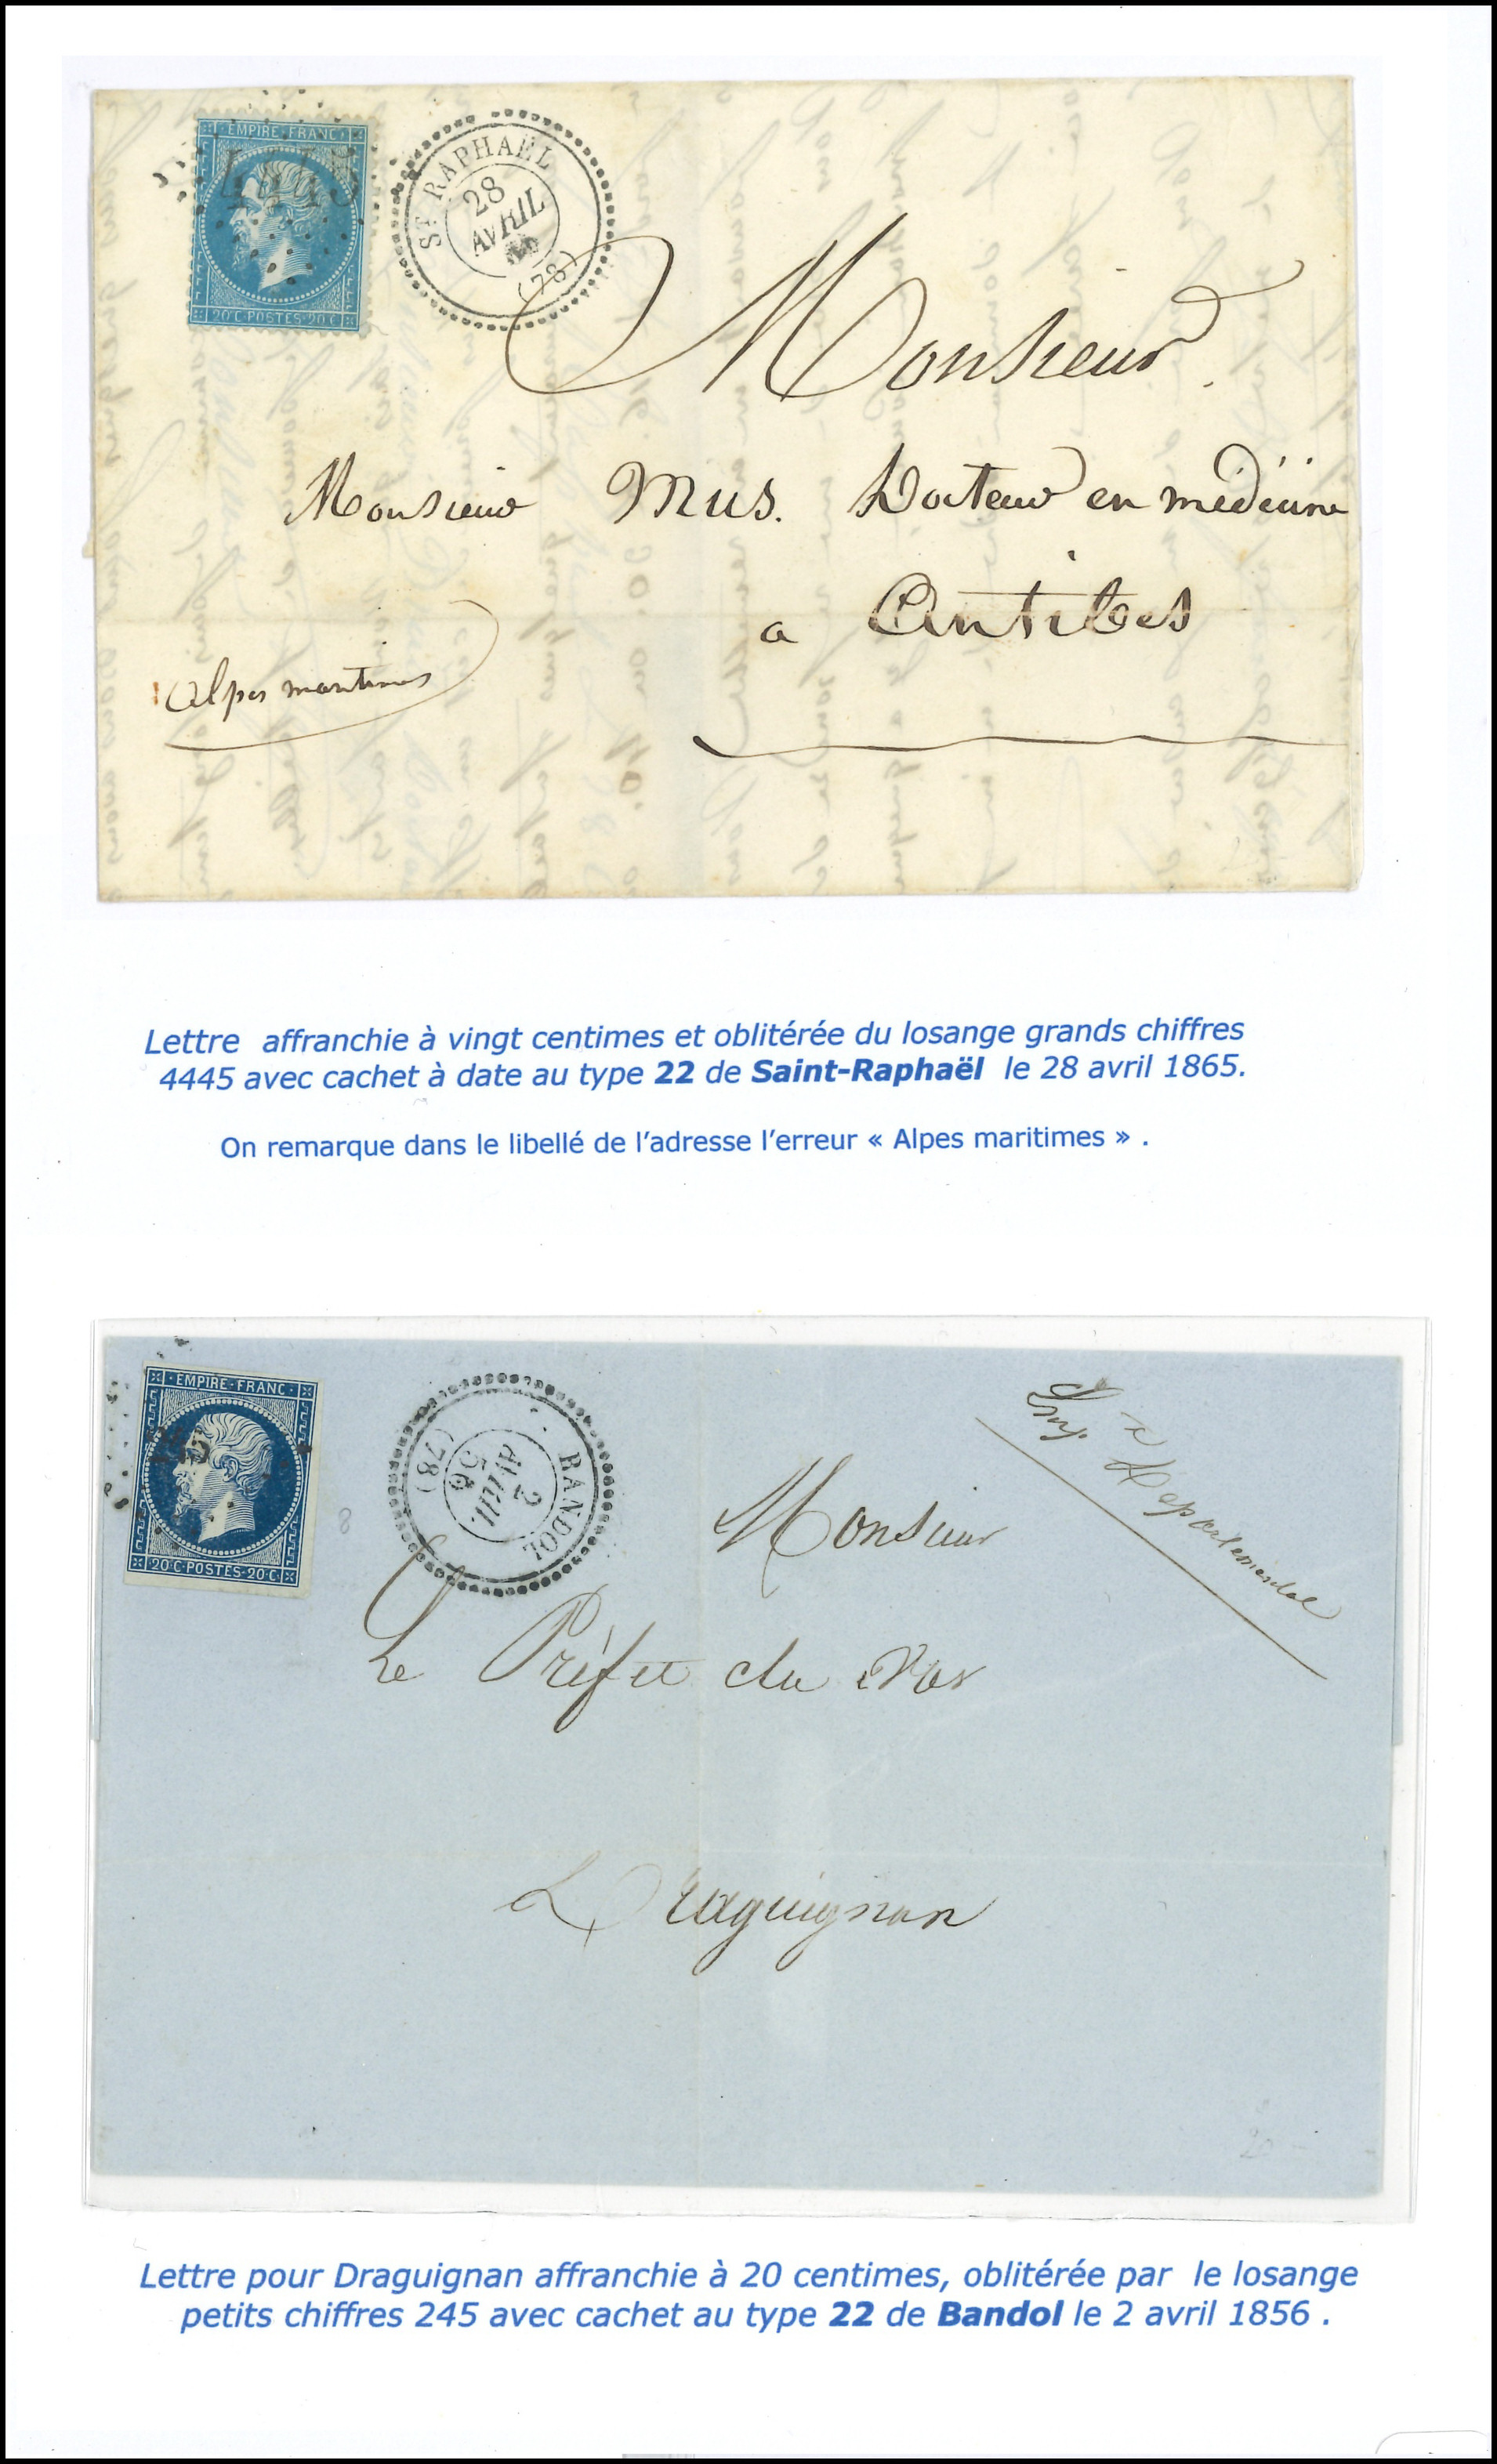 EMPIRE·FRANC
4445
20·C·POSTES·20·C
ST RAPHAËL
28
AVRIL
(78)
Monsieur
Monsieur Mus. Docteur en medecine
a Antibes
alpes maritimes
Lettre affranchie à vingt centimes et oblitérée du losange grands chiffres
4445 avec cachet à date au type 22 de Saint-Raphaël le 28 avril 1865.
On remarque dans le libellé de l'adresse l'erreur « Alpes maritimes » .
EMPIRE-FRANC
20·C·POSTES·20·C
BANDOL
2
AVRIL
56
(78)
8
Imp. Départementale
Monsieur
Le Préfet du Var
Draguignan
20
Lettre pour Draguignan affranchie à 20 centimes, oblitérée par le losange
petits chiffres 245 avec cachet au type 22 de Bandol le 2 avril 1856 .